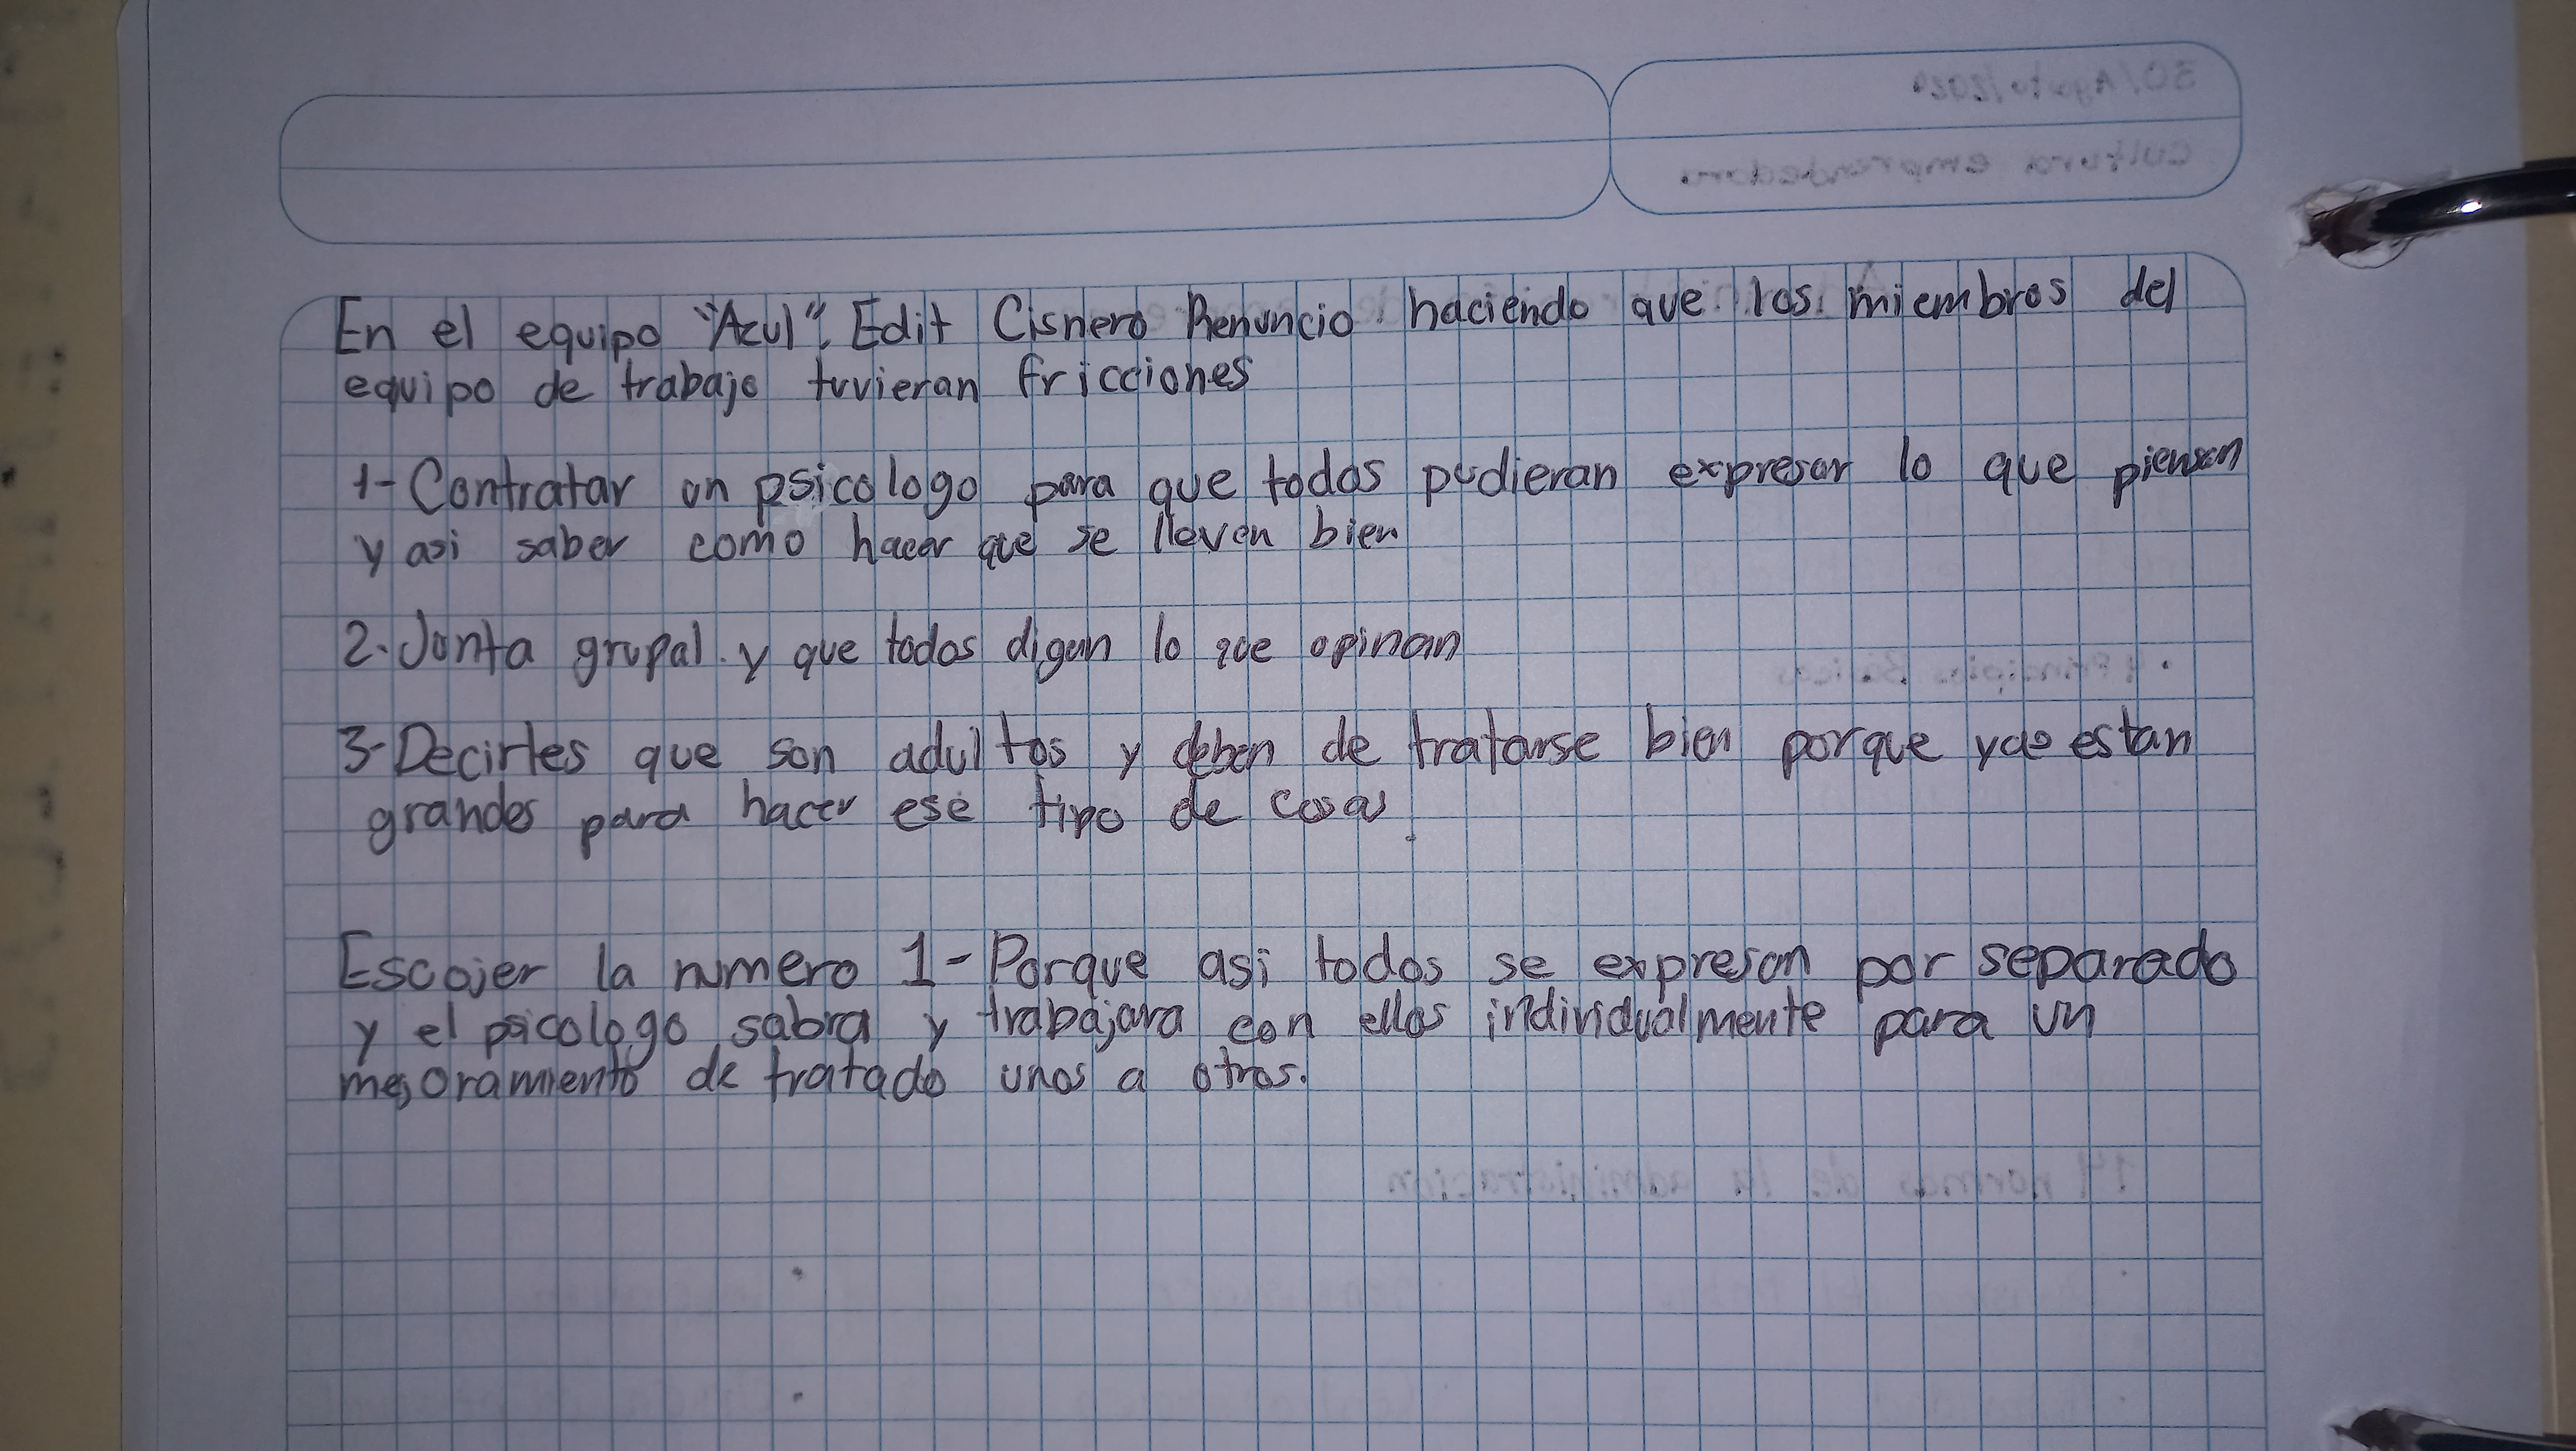 30/Agosto/2024
Cultura emprendedora.
En el equipo "Azul". Edit Cisnero Renuncio haciendo que los miembros del
equipo de trabajo tuvieran fricciones
1- Contratar un psicologo para que todos pudieran expresar lo que piensan
y asi saber como hacer que se lleven bien
2. Junta grupal y que todos digan lo que opinan
• 4 Principios Básicos
3- Decirles que son adultos y deben de tratarse bien porque ya estan
grandes para hacer ese tipo de cosas.
Escojer la numero 1- Porque asi todos se expresan por separado
y el psicologo sabra y trabajara con ellos individualmente para un
mejoramiento de tratado unos a otros.
14 normas de la administración